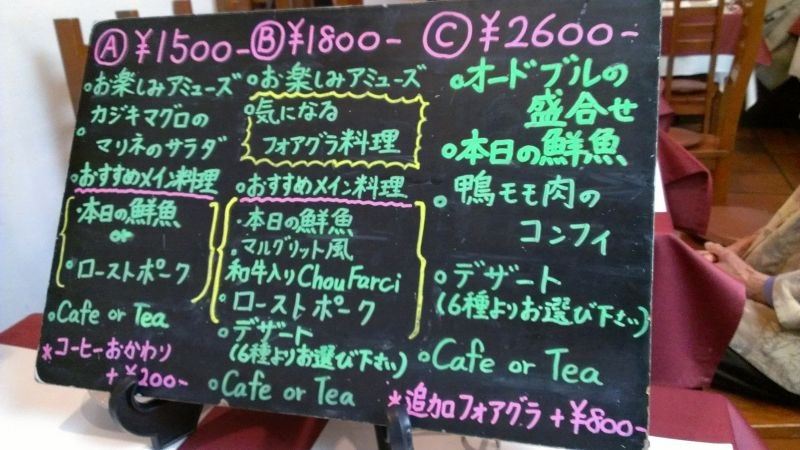 Ⓐ ¥1500-
○お楽しみアミューズ
○カジキマグロの
マリネのサラダ
○おすすめメイン料理
・本日の鮮魚
or
・ローストポーク
○Cafe or Tea
*コーヒーおかわり
+¥200-
Ⓑ ¥1800-
○お楽しみアミューズ
○気になる
フォアグラ料理
○おすすめメイン料理
・本日の鮮魚
・マルグリット風
和牛入りChouFarci
・ローストポーク
○デザート
(6種よりお選び下さい)
○Cafe or Tea
Ⓒ ¥2600-
○オードブルの
盛合せ
○本日の鮮魚
○鴨モモ肉の
コンフィ
○デザート
(6種よりお選び下さい)
○Cafe or Tea
*追加フォアグラ+¥800-